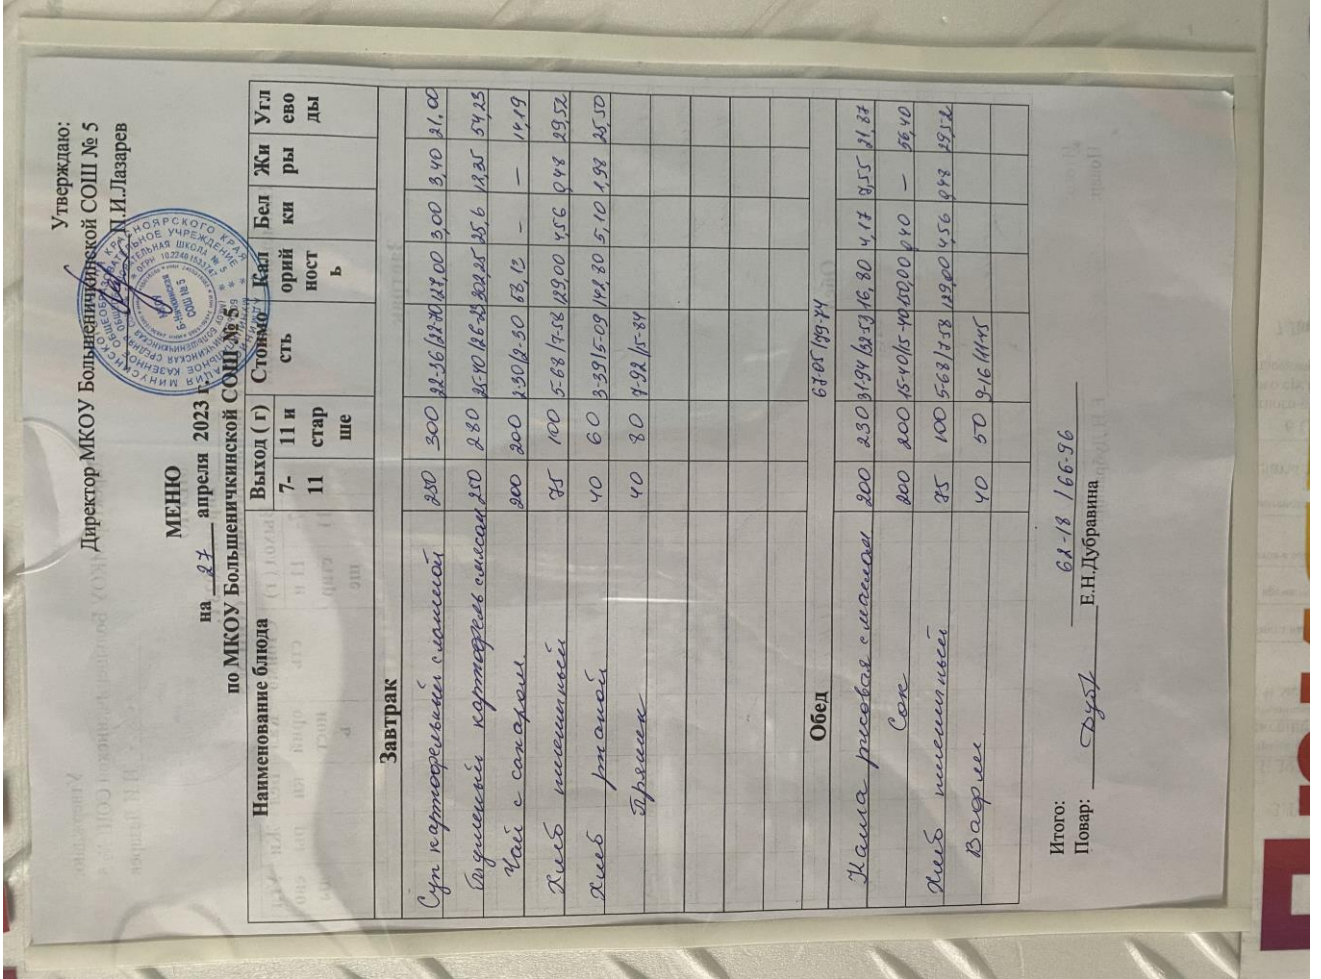 Утверждаю:
Директор МКОУ Большеничкинской СОШ № 5
П.И.Лазарев
МЕНЮ
на 27 апреля 2023 г.
по МКОУ Большеничкинской СОШ № 5
Наименование блюда Выход ( г) Стоимо сть Кал орий ност ь Бел ки Жи ры Угл ево ды
7-11 11 и стар ше
Завтрак
Суп картофельный с лапшой 250 300 22-36/22-70 127,00 3,00 3,40 21,00
картофель с мясом 250 280 25-40/26-23 302,25 25,6 12,35 54,23
Чай с сахаром 200 200 2-30/2-30 53,12 – – 14,19
Хлеб пшеничный 75 100 5-68/7-58 129,00 4,56 0,48 29,52
Хлеб ржаной 40 60 3-39/5-09 142,80 5,10 1,98 25,50
Пряник 40 80 7-92/15-84
Обед 67-05/79-74
Каша рисовая с маслом 200 230 31-94/32-53 216,80 4,17 7,55 21,87
Сок 200 200 15-40/15-40 150,00 0,40 – 56,40
Хлеб пшеничный 75 100 5-68/7-58 129,00 4,56 0,48 29,52
Вафли 40 50 9-16/11-45
Итого: 62-18/66-96
Повар: Е.Н.Дубравина